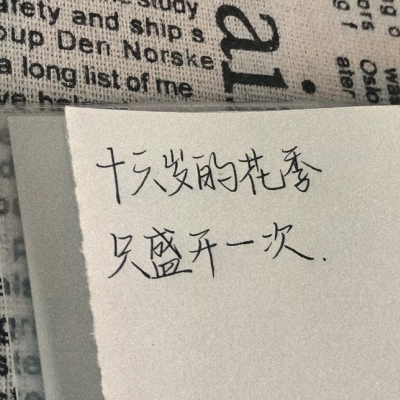 fety and ship s
oup Den Norske
a long list of me
al.
Oslo
ater
十六岁的花季
只盛开一次.